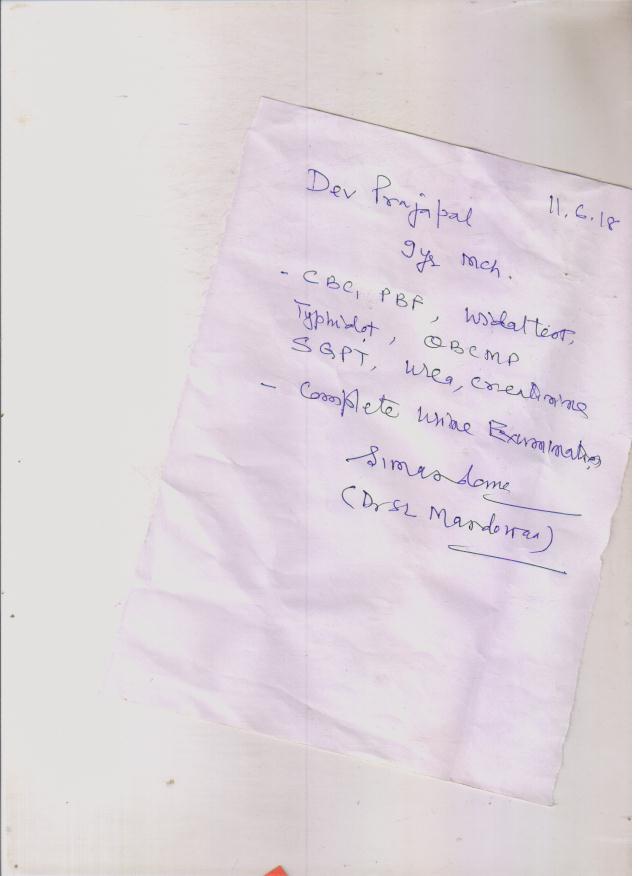 Dev Prajapal 11.6.18
9ys mch.
- CBC, PBF, Widal test,
Typhidot, QBCMP
SGPT, Urea, Creatinine
- Complete Urine Examination
(Dr SL